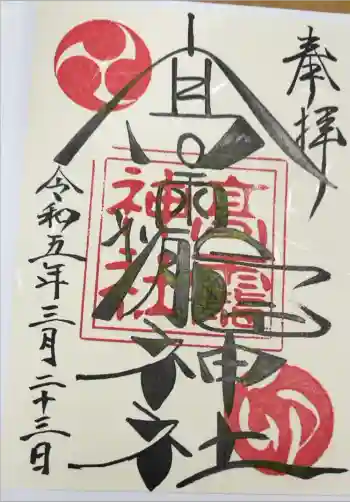 奉拝
高靇神社
高靇
神社
令和五年三月二十三日
卯